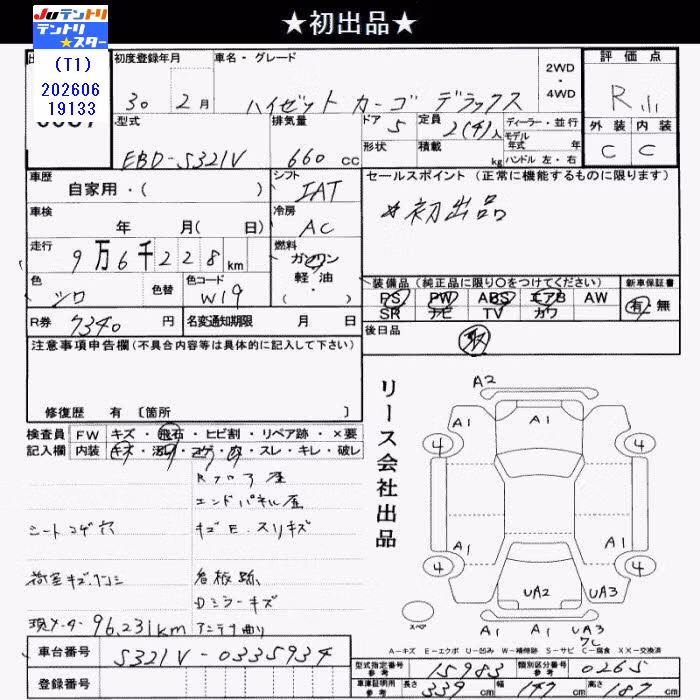 ★初出品★
Juテントリ
テントリ
★スター
(T1)
202606
19133
初度登録年月
30 2月
車名・グレード
ハイゼット カーゴ デラックス
2WD
・
4WD
評価点
R
外装 内装
C C
型式
EBD-S321V
排気量
660 cc
ドア 5
形状
定員 2(4)人
積載 kg
ディーラー・並行
モデル
年式 年
ハンドル 左・右
車歴
自家用・( )
シフト
IAT
セールスポイント (正常に機能するものに限ります)
*初出品
車検
年 月( 日)
冷房
AC
走行
9万6千228km
燃料
ガソリン
軽油
・( )
色
シロ
色替
色コード
W19
装備品(純正品に限り○をつけてください)
PS PW ABS エアB AW
SR ナビ TV カワ
新車保証書
有・無
R券 7340 円
名変通知期限 月 日
後日品
取
注意事項申告欄(不具合内容等は具体的に記入して下さい)
修復歴 有 〔箇所 〕
検査員
記入欄
FW キズ・飛石・ヒビ割・リペア跡・×要
内装 キズ・汚れ・コゲ・穴・スレ・キレ・破レ
Rフロア座
エンドパネル座
シートコゲ穴
キズE.スリキズ
荷室キズ.凹ミ
看板跡
Dミラーキズ
現メーター96,231km
アンテナ曲り
リース会社出品
A2
A1 A1
4 4
A1 A1
4 4
UA2 UA3
A1 A1 UA3
スペア
A-キズ E-エクボ U-凹み W-補修跡 S-サビ C-腐食 XX-交換済
車台番号 S321V-0335934
登録番号
型式指定番号
参考
15983
類別区分番号
参考
0265
車庫証明用
参考
長さ 339 cm
幅 147 cm
高さ 187 cm